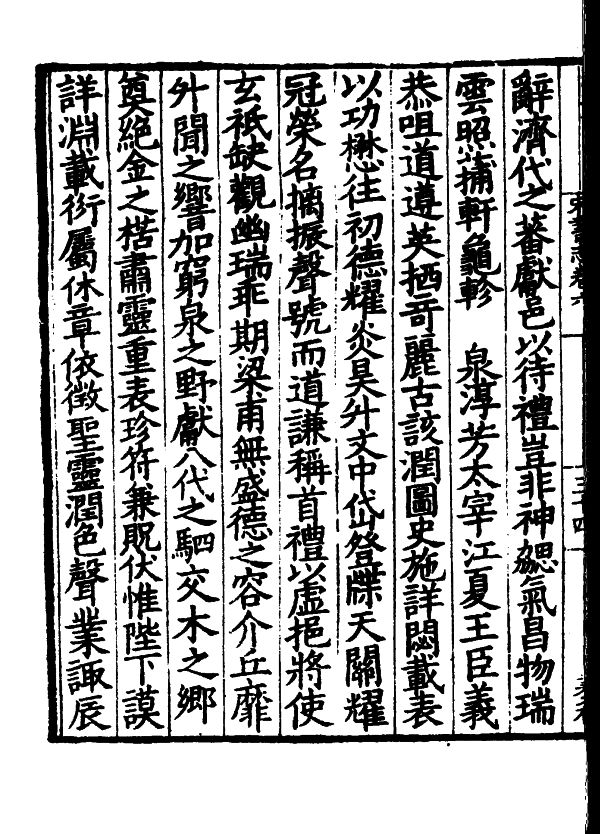 辭濟代之蕃獻邑以待禮豈非神勰氣昌物瑞
雲照蒱軒龜軫　泉淳芳太宰江夏王臣義
恭咀道遵英栖奇麗古該潤圖史施詳閟載表
以功懋往初德耀炎昊升文中岱登牒天關耀
冠榮名摛振聲號而道謙稱首禮以虛挹將使
玄祇缺觀幽瑞乖期梁甫無盛德之容介丘靡
外聞之響加窮泉之野獻八代之駟交木之鄉
奠絕金之楛肅靈重表珍符兼貺伏惟陛下謨
詳淵載衍屬休章依徵聖靈潤色聲業諏辰